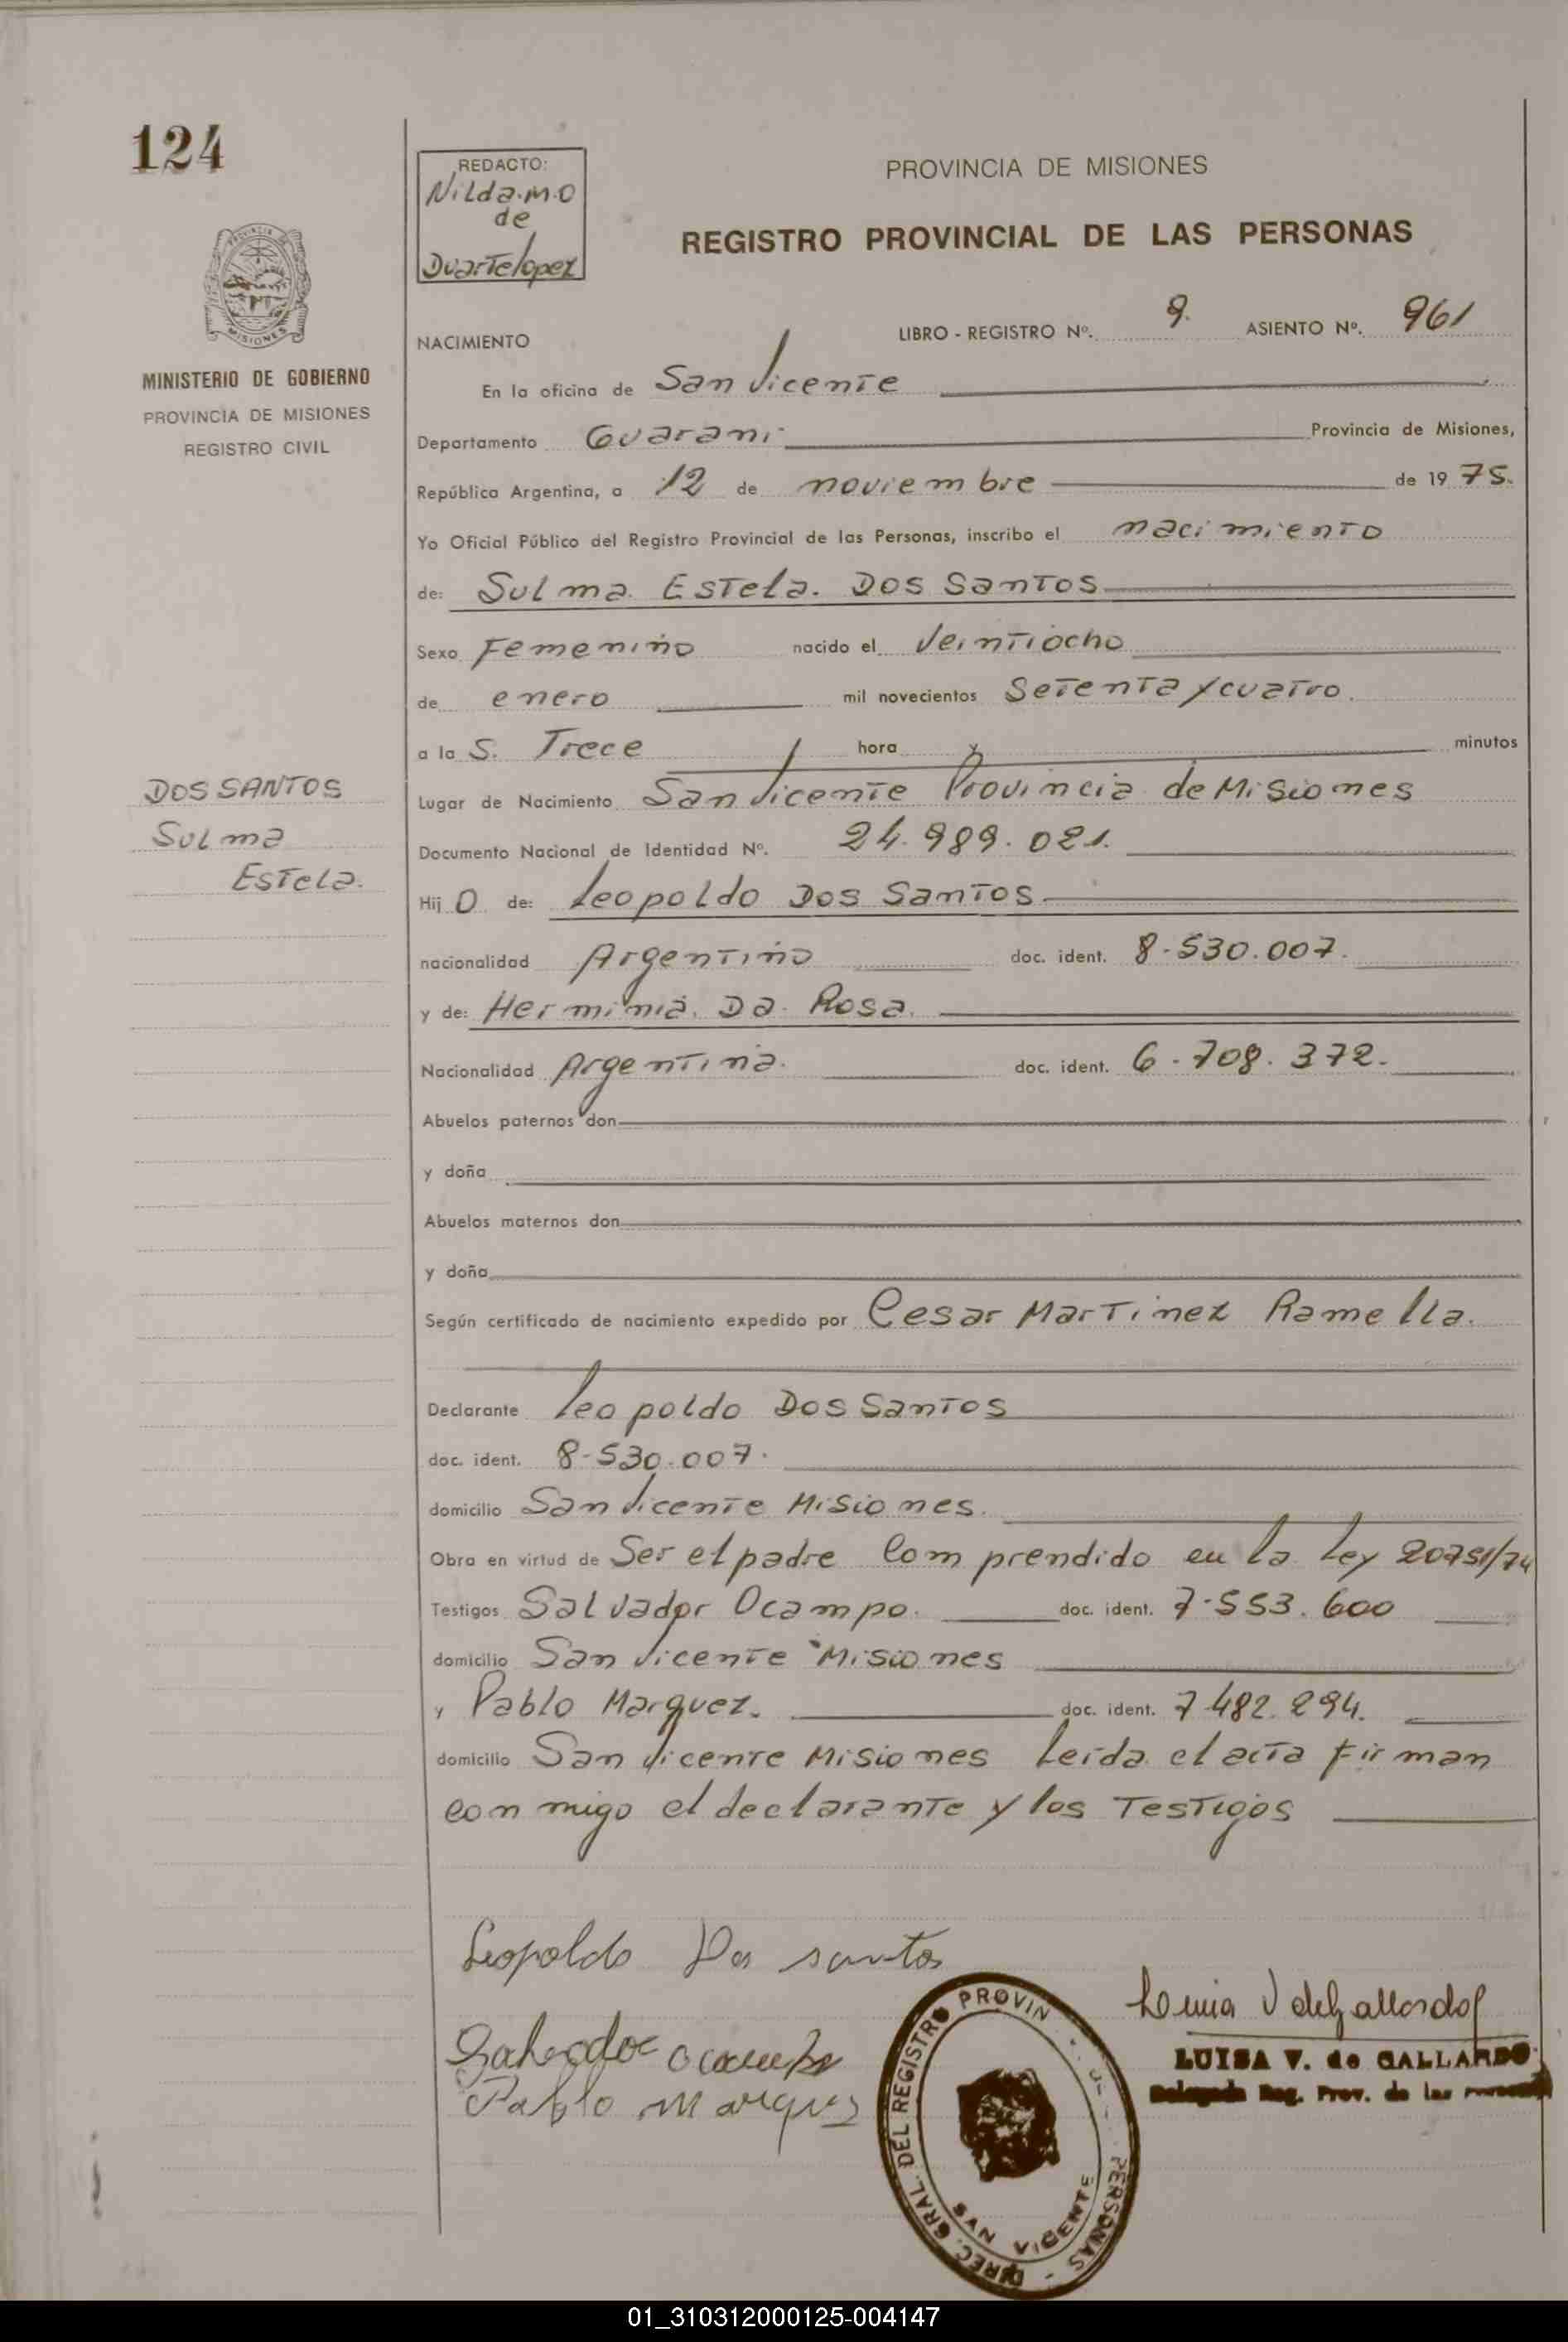 124
REDACTO:
Nilda.M.O
de
Duartelopez
PROVINCIA DE MISIONES
REGISTRO PROVINCIAL DE LAS PERSONAS
MISIONES
MINISTERIO DE GOBIERNO
PROVINCIA DE MISIONES
REGISTRO CIVIL
LIBRO - REGISTRO Nº. 9. ASIENTO Nº. 961
NACIMIENTO
En la oficina de San Vicente
Departamento Guarani Provincia de Misiones,
República Argentina, a 12 de noviembre de 1975.
Yo Oficial Público del Registro Provincial de las Personas, inscribo el nacimiento
de: Sulma Estela. Dos Santos
Sexo Femenino nacido el Veintiocho
de enero mil novecientos Setenta y cuatro.
a la S. Trece hora y minutos
Lugar de Nacimiento San Vicente Provincia de Misiones
DOS SANTOS
Sulma
Estela.
Documento Nacional de Identidad Nº. 24.989.021.
Hij O de: Leopoldo Dos Santos
nacionalidad Argentino doc. ident. 8-530.007.
y de: Herminia. Da. Rosa.
Nacionalidad Argentina. doc. ident. 6-708.372.
Abuelos paternos don
y doña
Abuelos maternos don
y doña
Según certificado de nacimiento expedido por Cesar Martinez Ramella.
Declarante Leopoldo Dos Santos
doc. ident. 8-530.007.
domicilio San Vicente Misiones.
Obra en virtud de Ser el padre Comprendido en la Ley 20751/74
Testigos Salvador Ocampo. doc. ident. 7-553.600
domicilio San Vicente Misiones
y Pablo Marquez. doc. ident. 7-482.294.
domicilio San Vicente Misiones Leída el acta firman
conmigo el declarante y los Testigos
Leopoldo Dos santos
Salvador Ocampo
Pablo Marques
Luisa V de Gallardo
LUISA V. de GALLARDO
Delegada Reg. Prov. de las Personas
DIREC. GRAL. DEL REGISTRO PROVIN PERSONAS -
SAN VICENTE
01_310312000125-004147